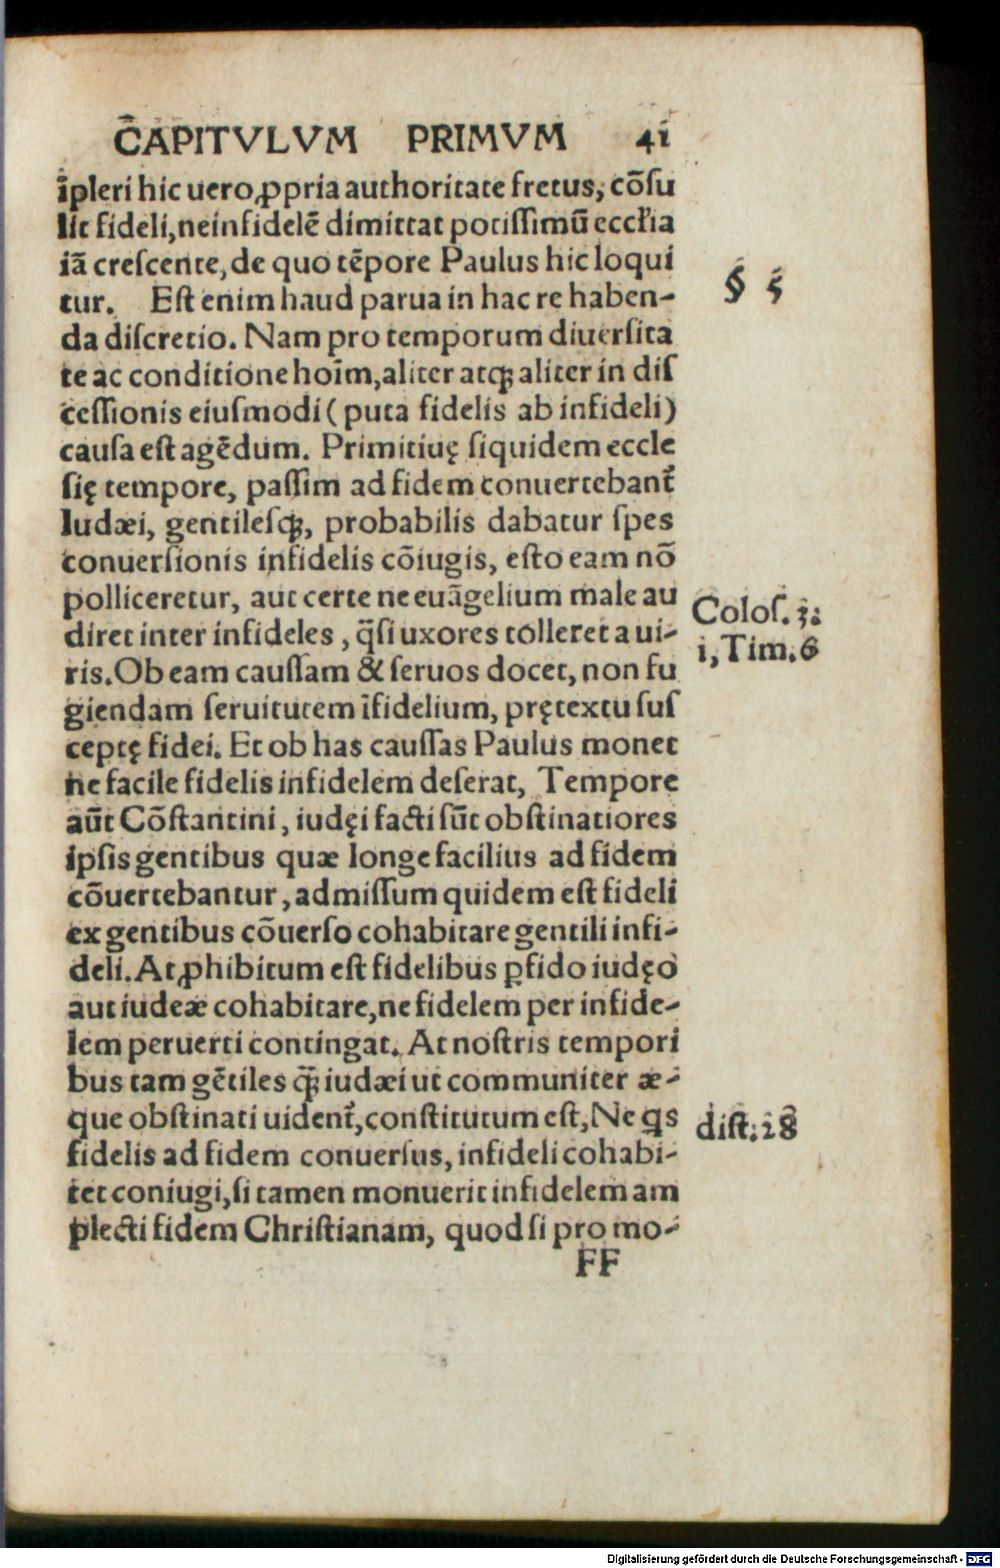 CAPITVLVM PRIMVM 41
īpleri hic uero,ꝓpria authoritate fretus, cōsu
lit fideli,neinfidelē dimittat potissimū eccl'ia
iā crescente, de quo tēpore Paulus hic loqui
tur. Est enim haud parua in hac re haben-
§ 5
da discretio. Nam pro temporum diuersita
te ac conditione hoīm, aliter atqꝫ aliter in dis
cessionis eiusmodi (puta fidelis ab infideli)
causa est agēdum. Primitiuę siquidem eccle
się tempore, passim ad fidem conuertebant᷑
Iudæi, gentilesqꝫ, probabilis dabatur spes
conuersionis infidelis cōiugis, esto eam nō
polliceretur, aut certe ne euāgelium male au
Colos. 3:
diret inter infideles, q̄si uxores tolleret a ui-
i, Tim. 6
ris. Ob eam caussam & seruos docet, non fu
giendam seruitutem īfidelium, prętextu sus
ceptę fidei. Et ob has caussas Paulus monet
ne facile fidelis infidelem deserat, Tempore
aūt Cōstantini, iudęi facti sūt obstinatiores
ipsis gentibus quæ longe facilius ad fidem
cōuertebantur, admissum quidem est fideli
ex gentibus cōuerso cohabitare gentili infi-
deli. At ꝓhibitum est fidelibus ꝑfido iudęo
aut iudeæ cohabitare, ne fidelem per infide-
lem peruerti contingat. At nostris tempori
bus tam gētiles q̄ꝫ iudæi ut communiter æ-
que obstinati uident᷑, constitutum est, Ne qs
dist. 28
fidelis ad fidem conuersus, infideli cohabi-
tet coniugi, si tamen monuerit infidelem am
plecti fidem Christianam, quod si pro mo-
FF
Digitalisierung gefördert durch die Deutsche Forschungsgemeinschaft - DFG